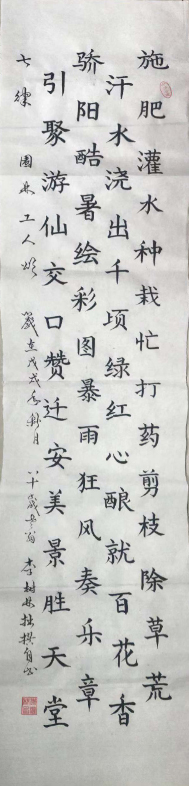 施肥灌水种栽忙打药剪枝除草荒
汗水浇出千顷绿红心酿就百花香
骄阳酷暑绘彩图暴雨狂风奏乐章
引聚游仙交口赞迁安美景胜天堂
七律 园林工人颂 岁在戊戌年秋月 八十岁老翁 李树林拙撰自书